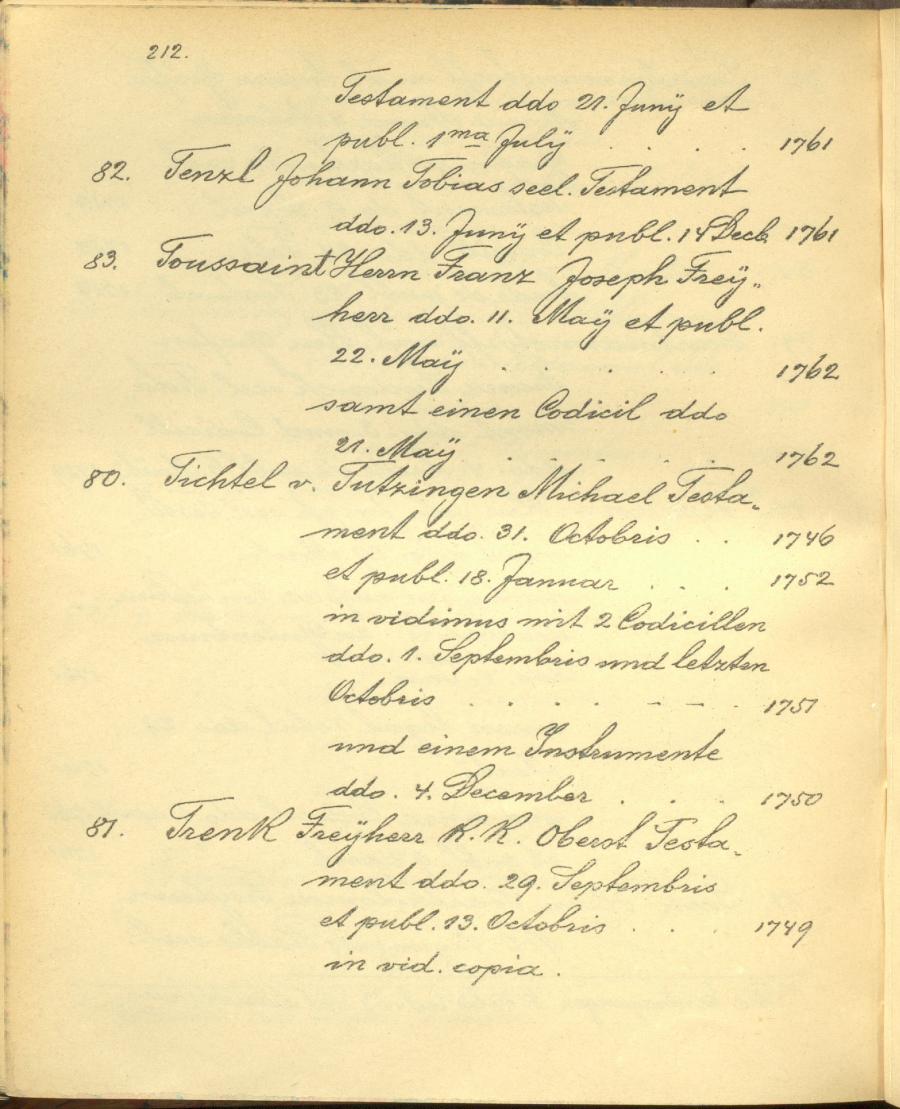 212.
Testament ddo 21. Junÿ et
publ. 1ma Julÿ . . . . 1761
82. Tenzl Johann Tobias seel. Testament
ddo. 13. Junÿ et publ. 14 Decb. 1761
83. Toussaint Herrn Franz Joseph Freÿ„
herr ddo. 11. Maÿ et publ.
22. Maÿ . . . . . 1762
samt einen Codicil ddo
21. Maÿ . . . . . 1762
80. Tichtel v. Tutzingen Michael Testa„
ment ddo. 31. Octobris . . 1746
et publ. 18. Januar . . . 1752
in vidimus mit 2 Codicillen
ddo. 1. Septembris und letzten
Octobris . . . . – – . 1751
und einem Instrumente
ddo. 4. December . . . 1750
81. Trenk Freÿherr K. K. Oberst Testa„
ment ddo. 29. Septembris
et publ. 13. Octobris . . . 1749
in vid. copia .